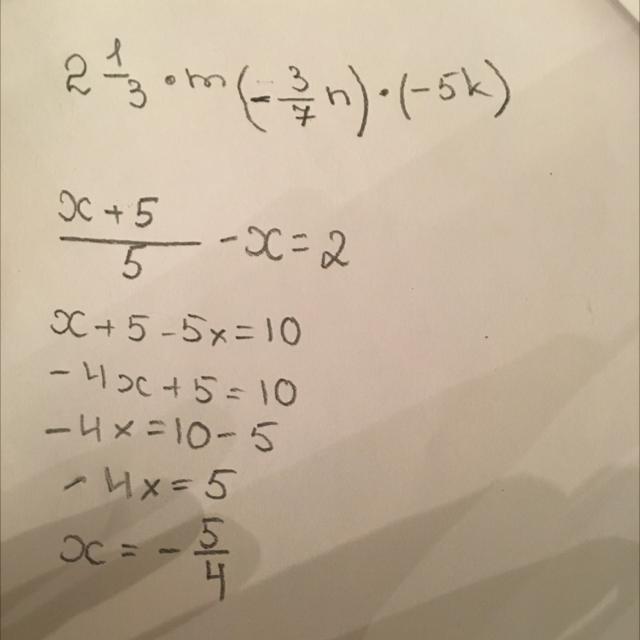 2 1/3 · m(-3/7 n) · (-5k)
(x + 5)/5 - x = 2
x + 5 - 5x = 10
-4x + 5 = 10
-4x = 10 - 5
-4x = 5
x = -5/4